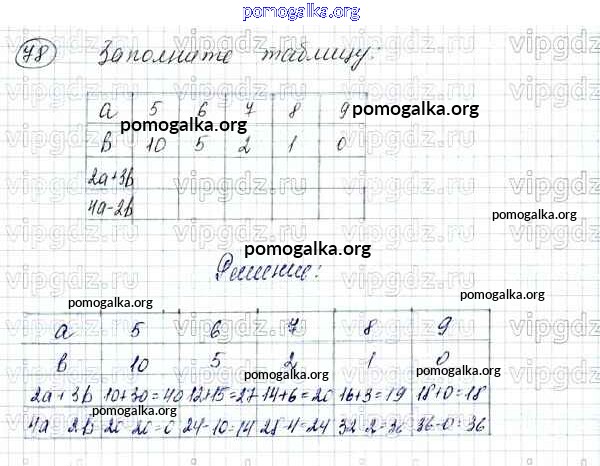 pomogalka.org
78 Заполните таблицу:
vipgdz.ru vipgdz.ru vipgdz.ru
a 5 6 7 8 9
pomogalka.org pomogalka.org
b 10 5 2 1 0
2a+3b
4a-2b
pomogalka.org
pomogalka.org
Решение:
pomogalka.org pomogalka.org
a 5 6 7 8 9
b 10 5 2 1 0
pomogalka.org pomogalka.org
2a+3b 10+30=40 12+15=27 14+6=20 16+3=19 18+0=18
pomogalka.org pomogalka.org
4a 2b 20-20=0 24-10=14 28-4=24 32-2=30 36-0=36